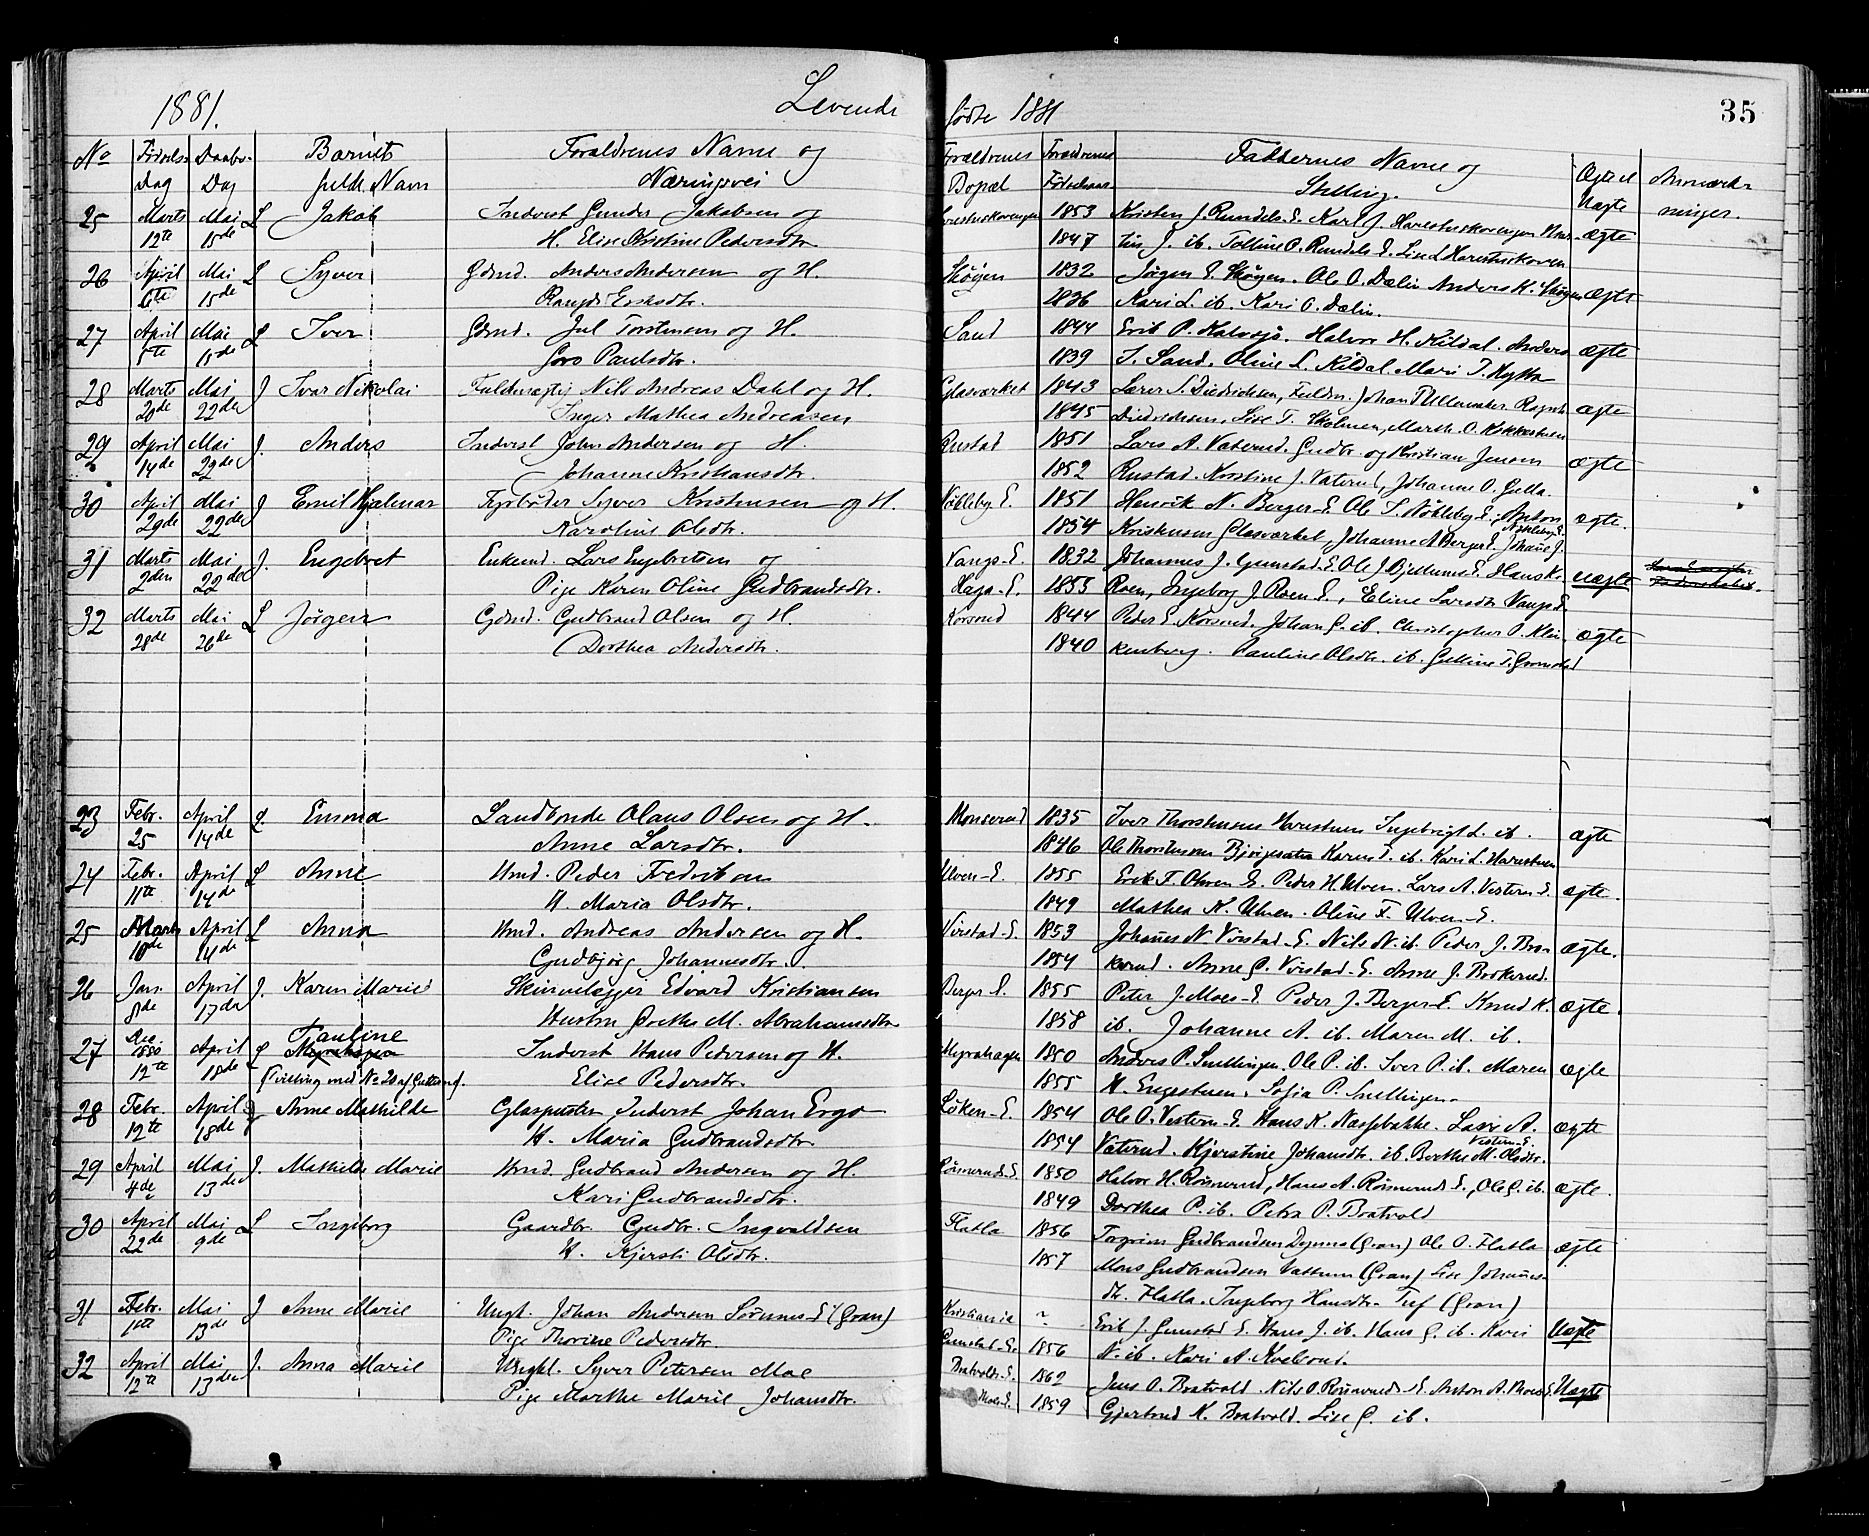 1881. Levende fødte 1881 35
No Fødsels Daabs- Barnets Forældrenes Navne og Forældrenes Forældrenes Faddernes Navne og Ægte el Anmærk-
Dag Dag fulde Navn Næringsvei Bopæl Fødselsaar Stilling. Uægte ninger.
25 Marts Mai L Jakob Inderst Gunder Jakobsen og 1853 Kristen J. Rundels. E. Karl J.
12te 15de H. Elise Kristine Pedersdtr 1847 J. ib. E. Lise L ægte
26 April Mai L Syver Gdmd. Anders Andersen og H. Skøyen 1832 Jørgen E. Skøyen. Ole O. Dælin Anders K. Skøyen
6te 15de Eriksdtr. 1836 Kari L. ib. Kari O. Dælin. ægte
27 April Mai L Iver Gdmd. Jul Torstensen og H. Sand 1844 Erik P. Halvor H. Kildal. Anders
5te 15de Goro Paulsdtr. 1839 T. Sand. Oline L. Kildal. Mari T. Hytta ægte
28 Marts Mai J. Ivar Nikolai Fuldmægtig Nils Andreas Dahl og H. Glasværket 1843 Lærer S. Diedrichsen, Fuldm. Johan
20de 22den Inger Mathea Andreasen 1845 Diedrichsen, Lise T. Skolmen, Marth. O. ægte
29 April Mai J. Anders Inderst John Andersen og H. Rustad 1851 Lars A. Vaterud. Gudbr. og Kristian Jensen
14de 22den Johanne Kristiansdtr. 1852 Rustad. Kirstine J. Vaterud, Johanne O. ægte
30 April Mai J. Emil Hjalmar Fyrbøder Syver Kristensen og H. Nøkleby E. 1851 Henrik N. Berger-E. Ole S. Nøkleby E., Anton
29de 22den Karoline Olsdtr. 1854 Kristensen Glasværket, Johanne A Berger E. Johane J. Nøkleby E. ægte.
31 Marts Mai J. Engebret Enkemd. Lars Engebretsen og Vangs-E. 1832 Johannes J. Gunstad-E. Ole J. Bjellum E. Hans K.
2den 22den Pige Karen Oline Gudbrandsdtr. Haga-E. 1855 Roen, Ingeborg J. Roen E., Eline Larsdtr Vangs E. uægte
32 Marts Mai L Jørgen Gdmd. Gudbrand Olsen og H. Korsrud 1844 Peder E. Korsrud. Johan G. ib. Christopher O. Klin
28de 26de Dorthea Andersdtr. 1840 kenberg. Pauline Olsdtr. ib. Gulline T. ægte
23 Febr. April L. Emma Landhandler Olaus Olsen og H. Monserud 1835 Iver Thorstensen Harestuen Ingebrigt L. ib.
25 14de Anne Larsdtr. 1846 Ole Thorstensen Karen T. ib. Kari L. Harestuen ægte
24 Febr. April L Anne Hmd. Peder Fredriksen Ulven-E. 1855 Erik T. Ohren E. Peder H. Ulven. Lars A. Vestern-E
11te 14de H. Maria Olsdtr. 1849 Mathea K. Ulven. Oline F. Ulven-E. ægte.
25 Marts April L Anna Hmd. Andreas Andersen og H. Virstad-E. 1853 Johannes N Virstad-E. Nils N. ib. Peder J. Bro-
10de 14de Gudbjørg Johannesdtr. 1854 kerud. Anne G. Virstad-E. Anne J. Brokerud. ægte.
26 Jan. April J. Karen Marie Skinvelegger Edvard Kristiansen Berger E. 1855 Peter J. Moes-E Peder J. Berger-E. Knud K.
8de 17de Hustru Grethe M. Abrahamsdtr 1858 ib. Johanne A. ib. Maren M. ib. ægte.
27 Dec. 1880 April L Pauline Inderst Hans Pedersen og H. Myrahagen 1850 Anders P. Snellingen. Ole P. ib. Iver P. ib. Maren
12te 18de (Tvilling med No 20 af Guttene). Elise Pedersdtr. 1855 H. Engestuen. Sofia P. Snellingen. ægte
28 Febr. April L Anne Mathilde Glaspuster Inderst Johan Ergo Løken-E. 1854 Ole O. Vestern-E Hans K. Næssebakke. Lasse A.
12te 18de H. Maria Gudbrandsdtr 1854 Vaterud. Kjerstine Johansdtr. ib. Berthe M. Olsdtr. Vestern-E. ægte
29 April Mai J. Mathilde Marie Hmd. Gudbrand Andersen og H. Rismerud-E. 1850 Halvor H. Rismerud, Hans A. Rismerud E., Ole G. ib.
4de 13de Kari Gudbrandsdtr. 1849 Dorthea P. ib. Petra P. Bratvold ægte.
30 April Mai L Ingeborg Gaardbr. Gudbr. Ingvaldsen Flatla 1856 Torgrim Gudbrandsen Dynna (Gran) Ole O. Flatla
22de 9de H. Kjersti Olsdtr. 1857 Mons Gudbrandsen (Gran) Lise Johannes- ægte
dtr. Flatla. Ingeborg Hansdtr. (Gran)
31 Febr. Mai J Anne Marie Ungk. Johan Andersen E (Gran) Kristiania ~ Erik J. Gunstad E. Hans J. ib. Hans G. ib. Karis
1ste 13de Pige Thorine Pedersdtr. Gunstad-E. 1856 N. ib. Kari A. Uægte
32 April Mai J. Anna Marie Ungk. Syver Petersen Moe Bratvold-E. 1862 Jens O. Bratvold. Nils O. Rismerud-E. Anton A. Moes E.
12te 13de Pige Marthe Marie Johansdtr. Moes E. 1859 Gjertrud K. Bratvold. Lise G. ib. Uægte